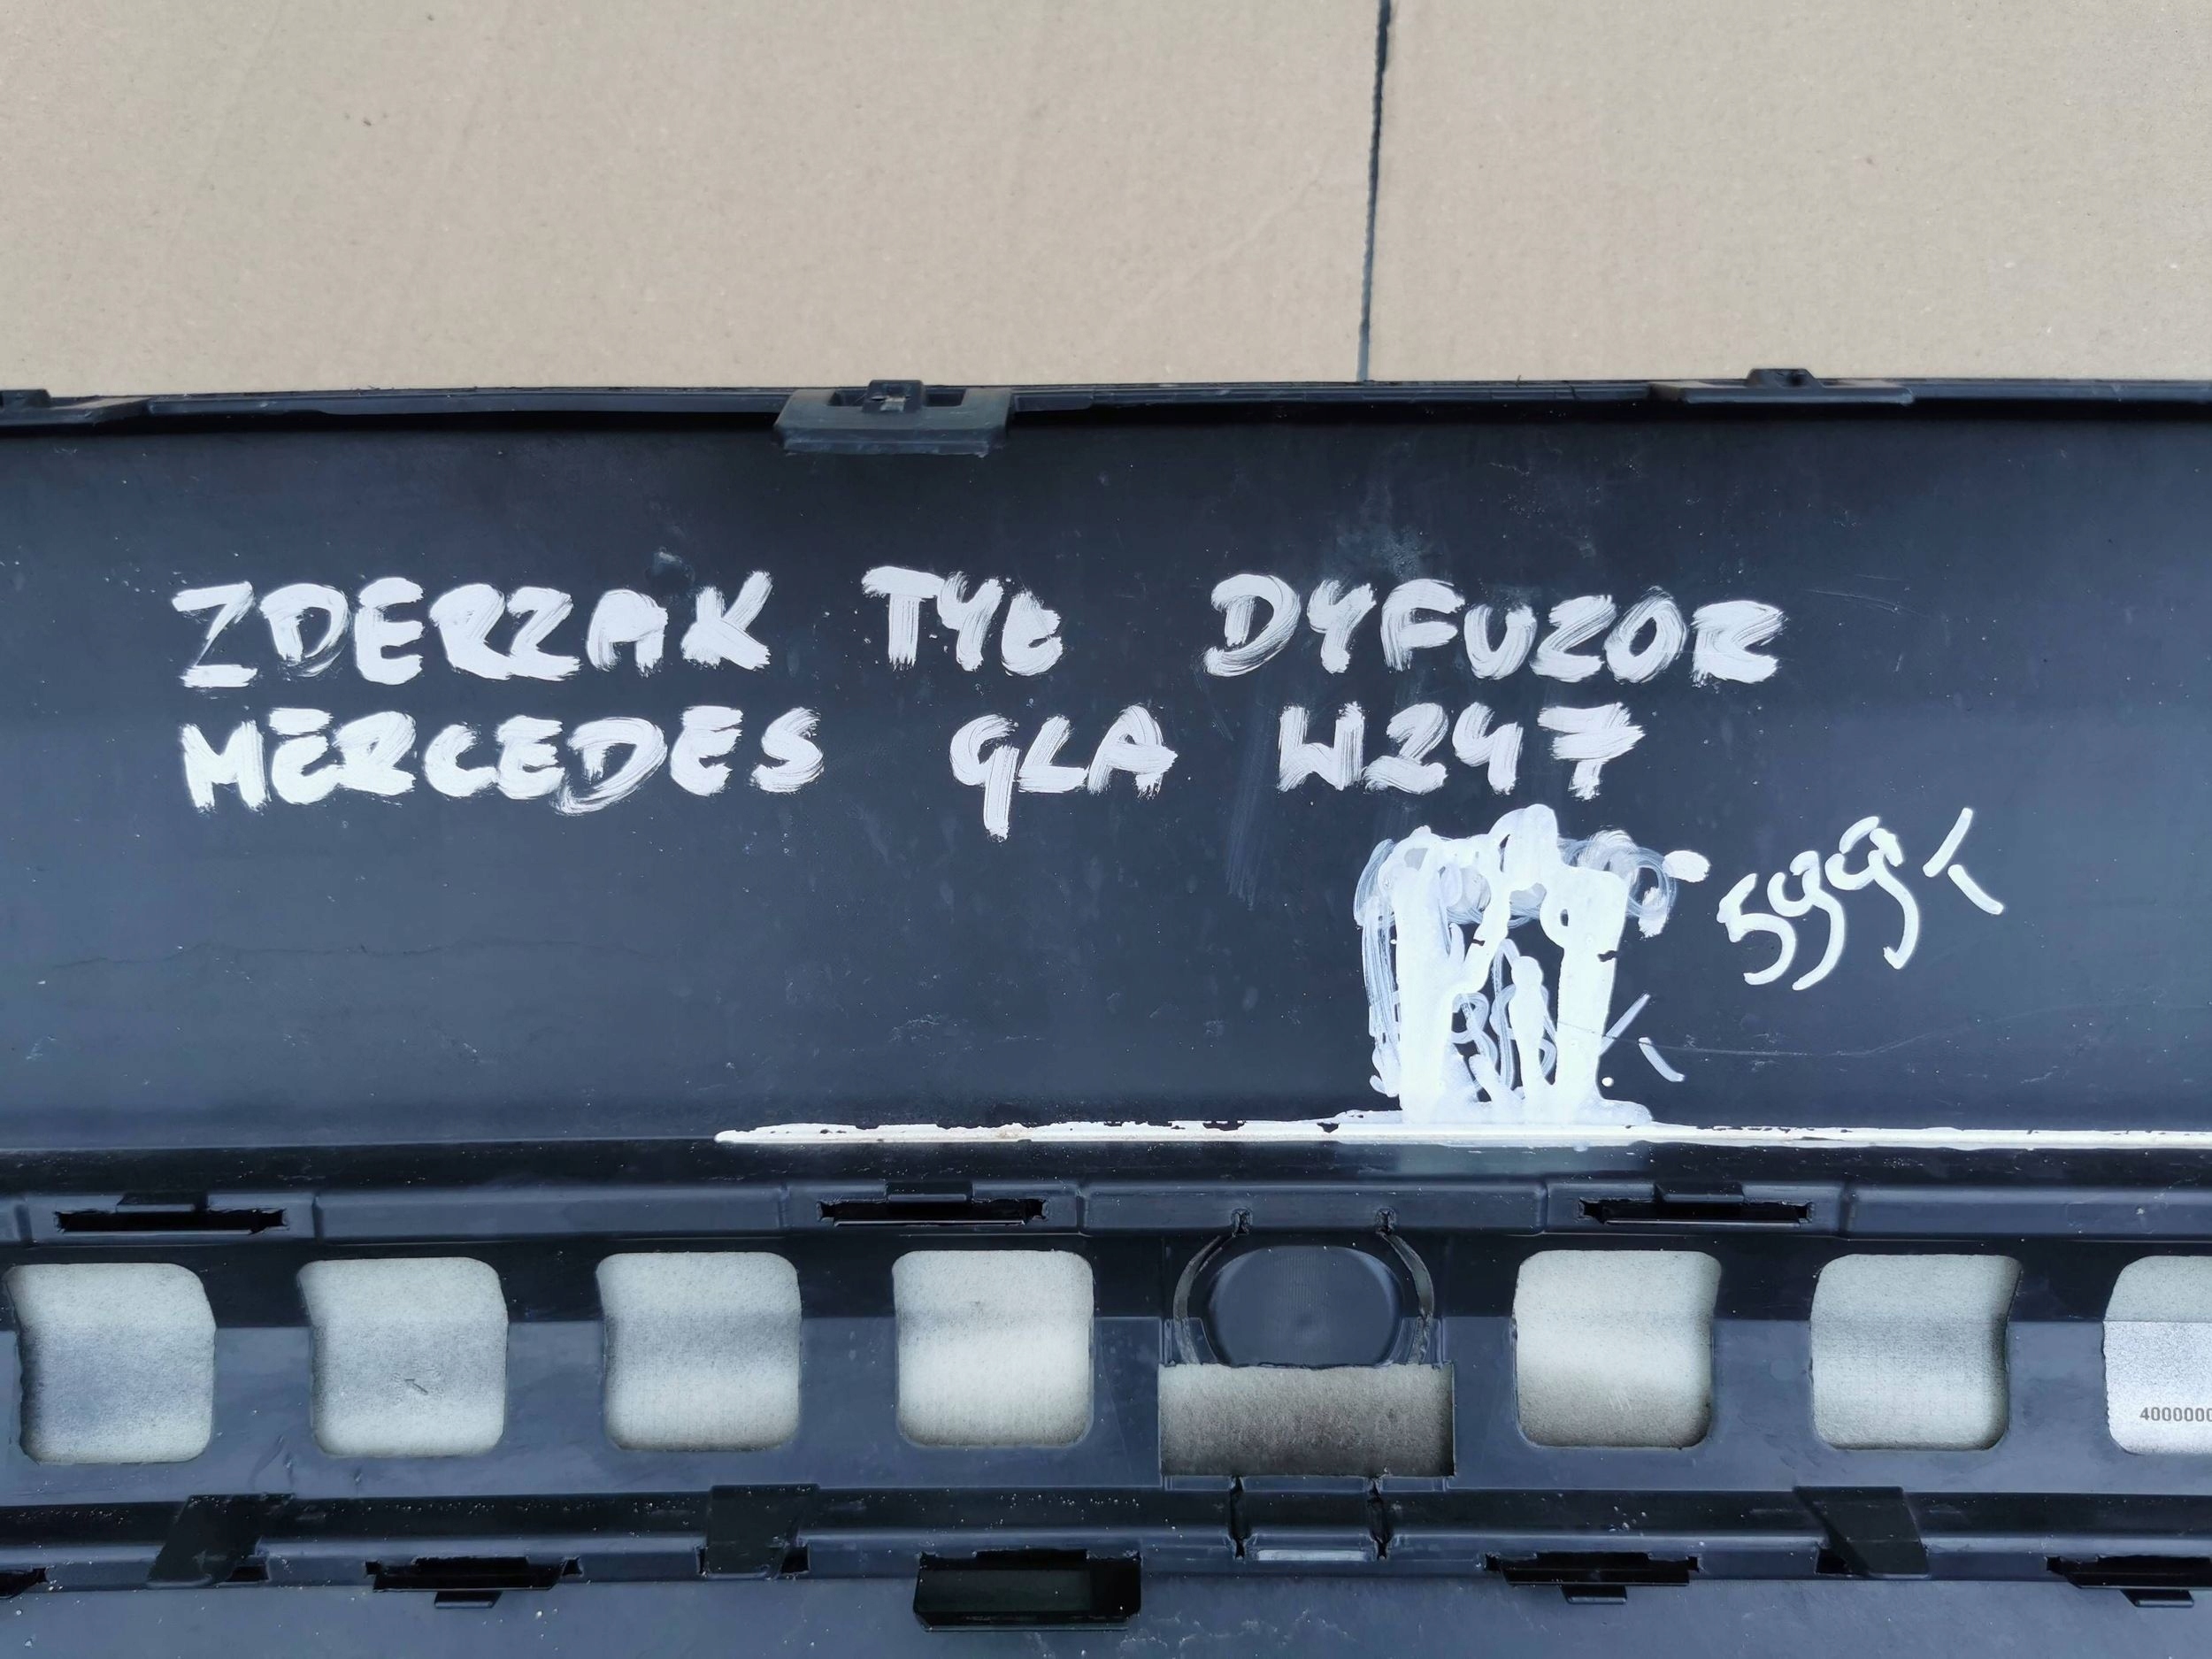 ZDERZAK TYŁ DYFUZOR
MERCEDES GLA W247
599,-
4000000